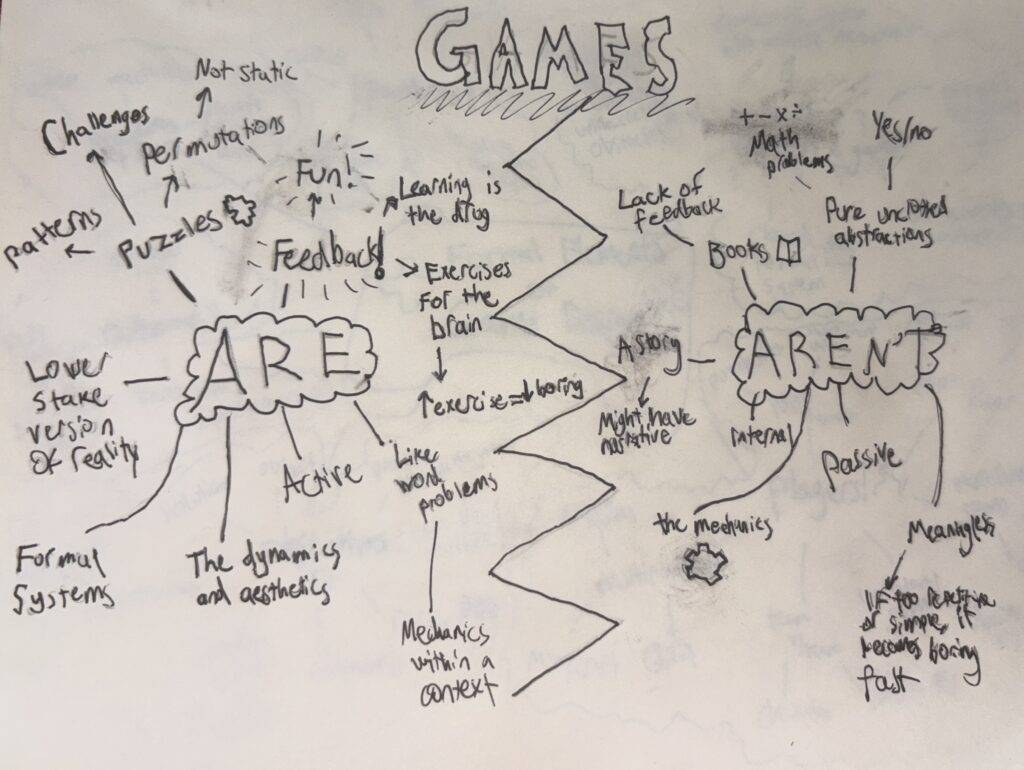 GAMES
Not static
Challenges
Permutations
patterns
Puzzles
Fun!
Feedback!
Learning is
the drug
Exercises
for the
brain
↑exercise=↓boring
ARE
Lower
stake
version
Of reality
Formal
Systems
The dynamics
and aesthetics
Active
Like
word
problems
Mechanics
within a
context
+ - × ÷
Math
problems
Yes/no
Lack of
feedback
Books
Pure
abstractions
A story
Might have
narrative
AREN'T
internal
the mechanics
Passive
If too
or simple, it
becomes boring
fast